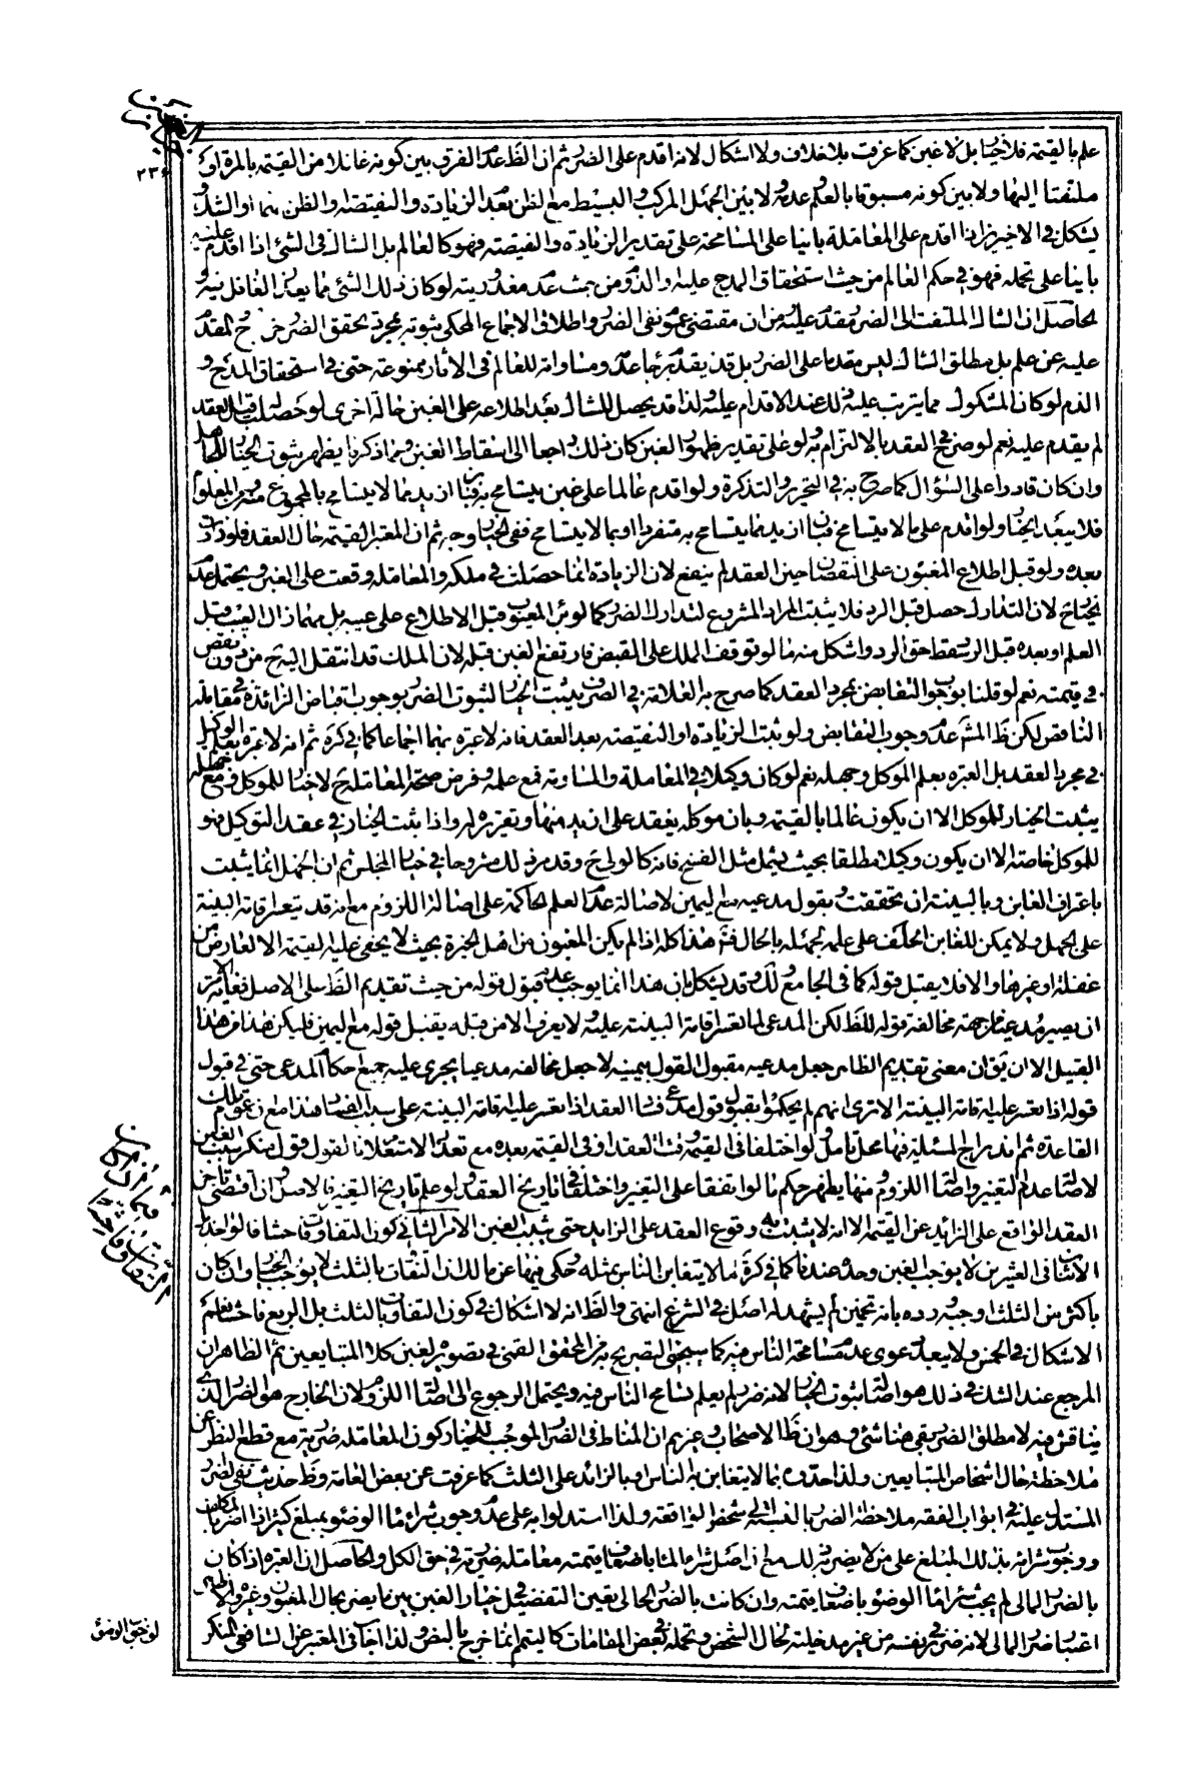 علم بالقيمة فلا خيار بل لا غبن كما عرفت بلا خلاف ولا اشكال لانه اقدم على الضرر ثم ان الظ عدم الفرق بين كونه غافلا من القيمة بالمرة او
ملتفتا اليها ولا بين كونه مسبوقا بالعلم وعدمه ولا بين الجهل المركب والبسيط مع الظن بعدم الزيادة والنقيصة والظن بهما او الشك و
يشكل في الاخيرين اذا اقدم على المعاملة بانيا على المسامحة على تقدير الزيادة والنقيصة فهو كالعالم بل الشاك في الشئ اذا اقدم عليه
بانيا على تحمله فهو في حكم العالم من حيث استحقاق المدح عليه والذم ومن حيث عدم معذوريته لو كان ذلك الشئ مما يعذر الغافل فيه و
الحاصل ان الشاك الملتفت الى الضرر مقدم عليه من ان مقتضى عموم نفى الضرر واطلاق الاجماع المحكى ثبوته بمجرد تحقق الضرر خرج المقدم
عليه عن علم بل مطلق الشاك ليس مقدما على الضرر بل قد يقدم برجاء عدمه ومساواته للعالم فى الآثار ممنوعة حتى في استحقاق المدح و
الذم لو كان المشكوك مما يترتب عليه ذلك عند الاقدام عليه ولذا قد يحصل للشاك بعد اطلاعه على الغبن حالة اخرى لو حصلت قبل العقد
لم يقدم عليه نعم لو صرح في العقد بالالتزام به ولو على تقدير ظهور الغبن كان ذلك راجعا الى اسقاط الغبن ومما ذكرنا يظهر ثبوت الخيار للجاهل
وان كان قادرا على السؤال كما صرح به في التحرير والتذكرة ولو اقدم عالما على غبن يتسامح به فبان ازيد بما لا يتسامح بالمجموع منه ومن المعلوم
فلا يبعد الخيار ولو اقدم على ما لا يتسامح فبان ازيد بما يتسامح به منفردا او بما لا يتسامح ففى الخيار وجه ثم ان المعتبر القيمة حال العقد فلو زادت
بعده ولو قبل اطلاع المغبون على النقصان حين العقد لم ينفع لان الزيادة انما حصلت في ملكه والمعاملة وقعت على الغبن ويحتمل عدم
الخيار ح لان التدارك حصل قبل الرد فلا يثبت الرد المشروع لتدارك الضرر كما لو برئ المعيوب قبل الاطلاع على عيبه بل مهما زال العيب قبل
العلم او بعده قبل الرد سقط حق الرد واشكل منه ما لو توقف الملك على القبض فارتفع الغبن قبله لان الملك قد انتقل اليه ح من دون نقص
في قيمته نعم لو قلنا بوجوب التقابض بمجرد العقد كما صرح به العلامة في الصرف يثبت الخيار لثبوت الضرر بوجوب اقباض الزائد في مقابلة
الناقص لكن ظ المشهور عدم وجوب التقابض ولو ثبت الزيادة او النقيصة بعد العقد فانه لا عبرة بهما اجماعا كما في كره ثم انه لا عبرة بعلم الوكيل
في مجرد العقد بل العبرة بعلم الموكل وجهله نعم لو كان وكيلا في المعاملة والمساومة فمع علمه وفرض صحة المعاملة ح لا خيار للموكل ومع جهله
يثبت الخيار للموكل الا ان يكون عالما بالقيمة وبان موكله يعقد على ازيد منها ويقرره له واذا ثبت الخيار في عقد الوكيل فهو
للموكل خاصة الا ان يكون وكيلا مطلقا بحيث يشمل مثل الفسخ فانه كالولى ح وقد مر ذلك مشروحا في خيار المجلس ثم ان الجهل انما يثبت
باعتراف الغابن وبالبينة ان تحققت وبقول مدعيه مع اليمين لاصالة عدم العلم الحاكمة على اصالة اللزوم مع انه قد يتعسر اقامة البينة
على الجهل ولا يمكن للغابن الحلف على علمه لجهله بالحال فت هذا كله اذا لم يكن المغبون من اهل الخبرة بحيث لا يخفى عليه القيمة الا لعارض من
غفلة او غيرها والا فلا يقبل قوله كما فى الجامع ولك وقد يشكل بان هذا انما يوجب عدم قبول قوله من حيث تقديم الظ على الاصل فغاية الامر
ان يصير مدعيا من جهة مخالفة قوله للظ لكن المدعى لما تعسر اقامة البينة عليه ولا يعرف الا من قبله يقبل قوله مع اليمين فليكن هذا من هذا
القبيل الا ان يق ان معنى تقديم الظاهر جعل مدعيه مقبول القول بيمينه لا جعل مخالفه مدعيا يجرى عليه جميع احكام المدعى حتى في قبول
قوله اذا تعسر عليه اقامة البينة الا ترى انهم لم يحكموا بقبول قول مدعى فساد العقد اذا تعسر عليه اقامة البينة على سبب الفساد هذا مع ان عموم تلك
القاعدة ثم اندراج المسئلة فيها محل تامل ولو اختلفا في القيمة وقت العقد او في القيمة بعده مع تعذر الاستعلام فالقول قول منكر سبب الغبن
لاصالة عدم التغير واصالة اللزوم ومنها يظهر حكم ما لو اتفقا على التغير واختلفا في تاريخ العقد ولو علم تاريخ التغير فالاصل وان اقتضى تاخر
العقد الواقع على الزائد عن القيمة الا انه لا يثبت به وقوع العقد على الزايد حتى يثبت الغبن الامر الثانى كون التفاوت فاحشا فالواحد بل
الاثنان فى العشرين لا يوجب الغبن وحده عندنا كما في كره ما لا يتغابن الناس بمثله وحكى فيها عن مالك ان التفاوت بالثلث لا يوجب الخيار وان كان
باكثر من الثلث اوجبه ورده بانه تخمين لم يشهد له اصل في الشرع انتهى والظ انه لا اشكال في كون التفاوت بالثلث بل الربع فاحشا نعم
الاشكال في الخمس ولا يبعد دعوى عدم مسامحة الناس فيه كما سيجئ التصريح به من المحقق القمى في تصويره لغبن كلا المتبايعين ثم الظاهر ان
المرجع عند الشك في ذلك هو اصالة ثبوت الخيار لانه ضرر لم يعلم تسامح الناس فيه ويحتمل الرجوع الى اصالة اللزوم لان الخارج هو الضرر الذى
يناقش فيه لا مطلق الضرر بقى هنا شئ وهو ان ظ الاصحاب وغيرهم ان المناط في الضرر الموجب للخيار كون المعاملة ضررية مع قطع النظر عن
ملاحظة حال اشخاص المتبايعين ولذا حدوه بما لا يتغابن به الناس او بالزائد على الثلث كما عرفت عن بعض العامة وظ حديث نفى الضرر
المستدل عليه في ابواب الفقه ملاحظة الضرر بالنسبة الى شخص الواقعة ولذا استدلوا به على عدم وجوب شراء ماء الوضوء بمبلغ كثير اذا اضر بالمكلف
ووجوب شرائه بذلك المبلغ على من لا يضر به ذلك مع ان اصل شراء الماء باضعاف قيمته معاملة ضررية في حق الكل والحاصل ان العبرة اذا كان
بالضرر المالى لم يجب شراء ماء الوضوء باضعاف قيمته وان كانت بالضرر الحالى تعين التفصيل في خيار الغبن بين ما يضر بحال المغبون وغيره والاظهر
اعتبار الضرر المالى لانه ضرر في نفسه من غير مدخلية لحال الشخص وتحمله في بعض المقامات كالتيمم انما خرج بالنص ولذا اجاب في المعتبر عن الشافعى المنكر
لوجوب الوضوء
٢٣٦